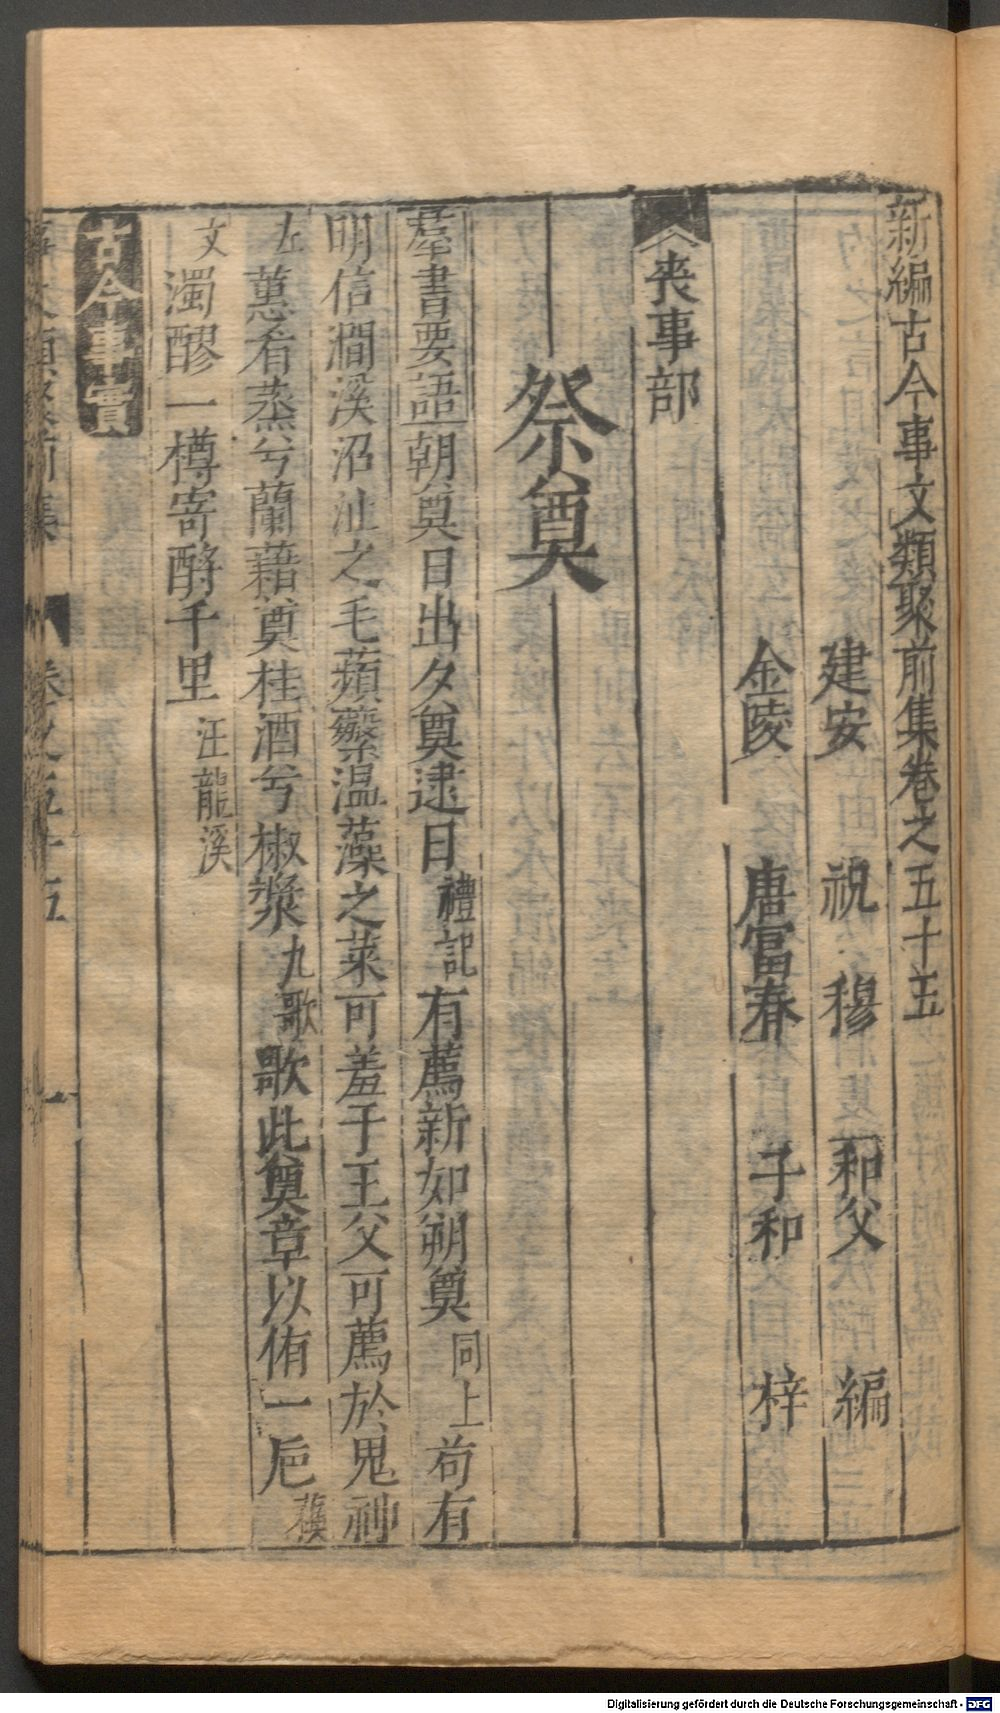 新編古今事文類聚前集卷之五十五
建安 祝 穆 和父 編
金陵 唐富春 子和 梓
喪事部
祭奠
羣書要語朝奠日出夕奠逮日禮記有薦新如朔奠同上苟有
明信澗溪沼沚之毛蘋蘩溫藻之菜可羞于王父可薦於鬼神
左蕙肴蒸兮蘭藉奠桂酒兮椒漿九歌歌此奠章以侑一巵蘇
文濁醪一樽寄酹千里汪龍溪
古今事實
事文類聚前集 卷之五十五 一
Digitalisierung gefördert durch die Deutsche Forschungsgemeinschaft - DFG